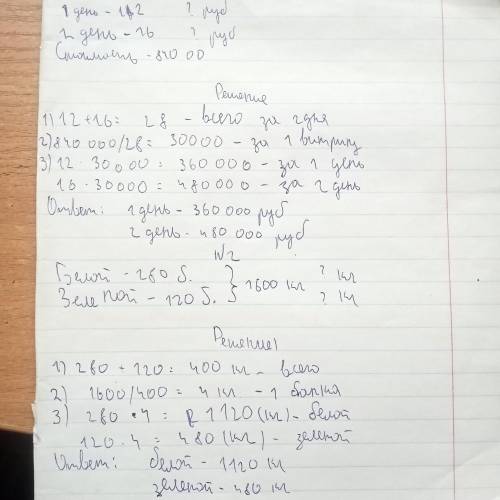 1 день - 12 ? руб
2 день - 16 ? руб
Стоимость - 840 00
Решение
1) 12 + 16 = 28 - всего за 2 дня
2) 840 000/28 = 30000 - за 1 витрину
3) 12 · 30000 = 360000 - за 1 день
16 · 30000 = 480000 - за 2 день
Ответ: 1 день - 360 000 руб
2 день - 480 000 руб
№2
Белой - 280 б. } 1600 кг ? кг
Зеленой - 120 б. ? кг
Решение
1) 280 + 120 = 400 кг - всего
2) 1600/400 = 4 кг - 1 банка
3) 280 · 4 = 1120 (кг) - белой
120 · 4 = 480 (кг) - зеленой
Ответ: белой - 1120 кг
зеленой - 480 кг